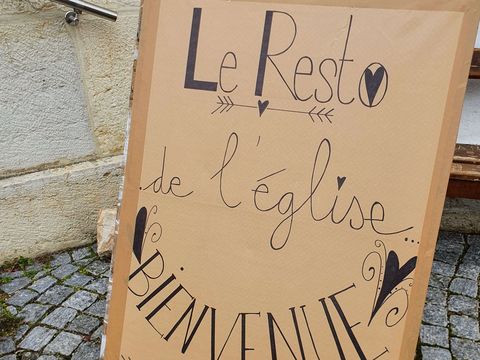 Le Resto
de l'église...
BIENVENUE